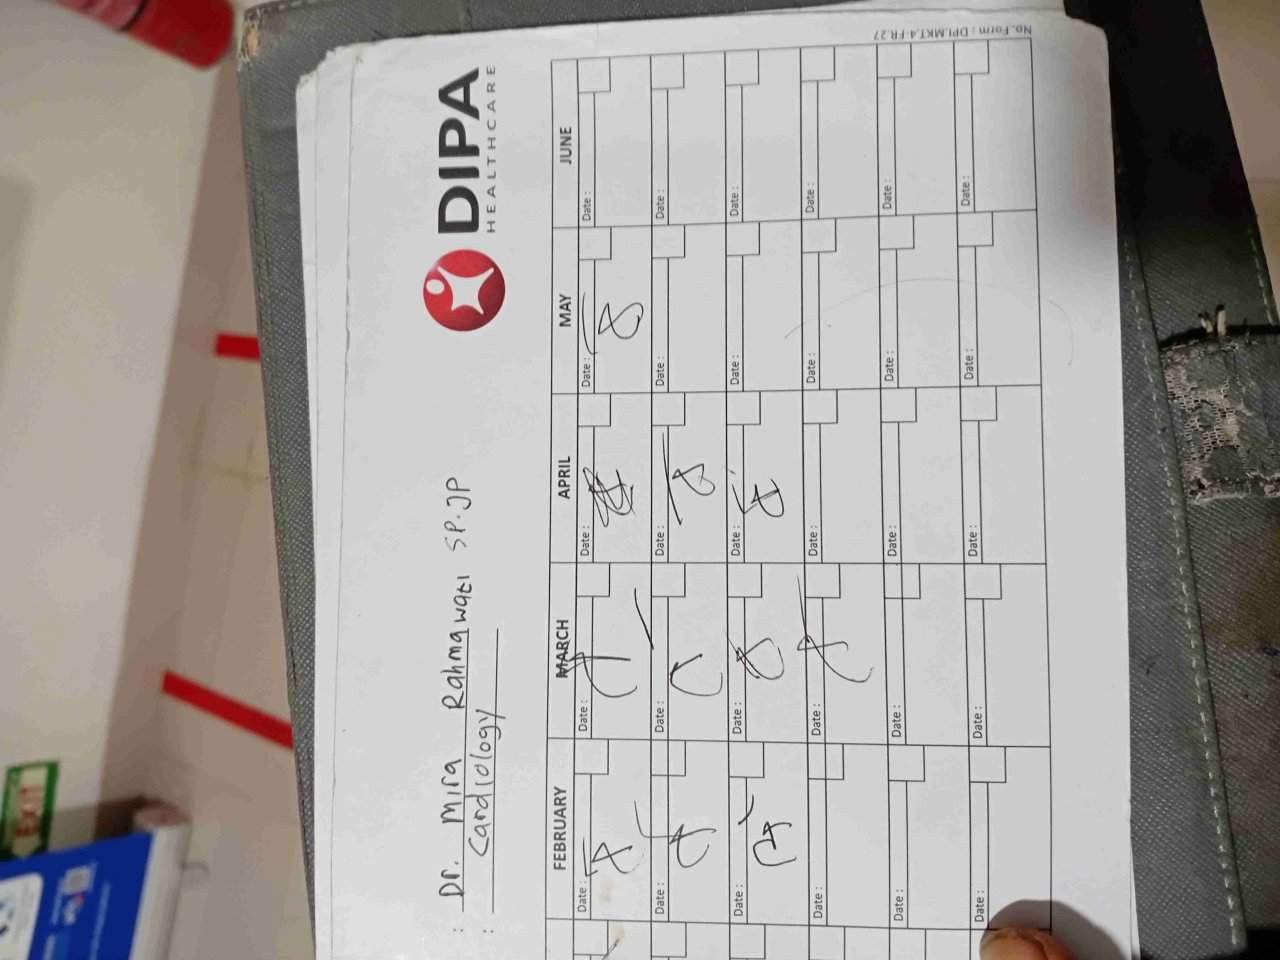 DIPA
HEALTHCARE
: Dr. Mira Rahmawati SP.JP
: Cardiology
FEBRUARY MARCH APRIL MAY JUNE
Date : Date : Date : Date : Date :
Date : Date : Date : Date : Date :
Date : Date : Date : Date : Date :
Date : Date : Date : Date : Date :
Date : Date : Date : Date : Date :
Date : Date : Date : Date : Date :
No. Form : DPI.MKT.4-FR.27
EXIT